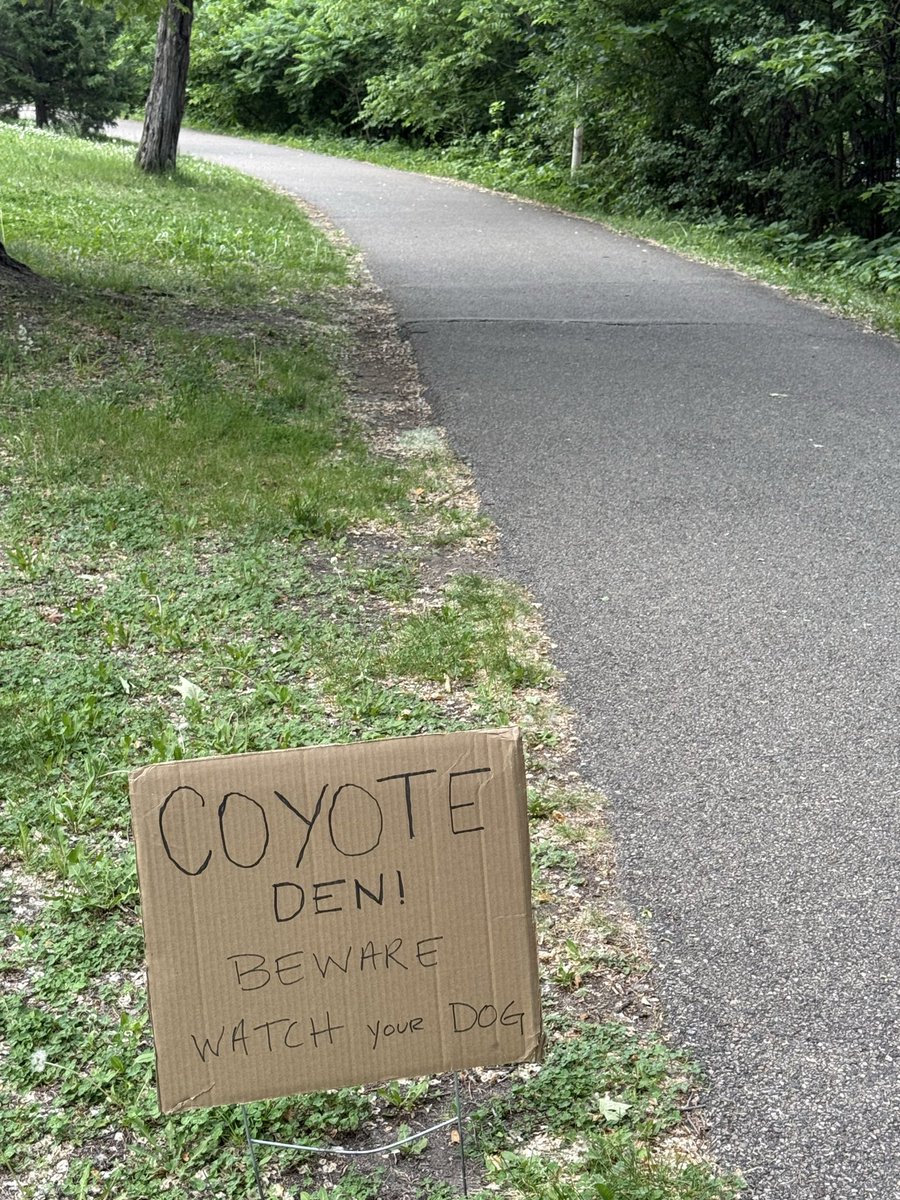 COYOTE
DEN!
BEWARE
WATCH your DOG